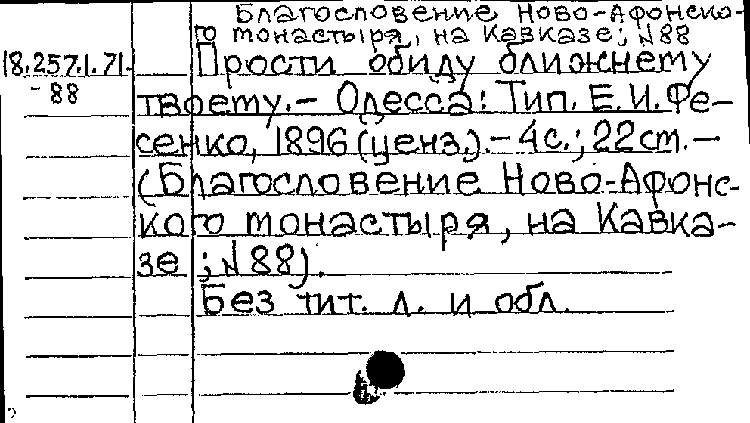 Благословение Ново-Афонско-
го монастыря, на Кавказе; №88
18.257.1.71.
-88
Прости обиду ближнему
твоему.- Одесса: Тип. Е.И.Фе-
сенко, 1896 (ценз.).- 4с.; 22см.-
(Благословение Ново-Афонс-
кого монастыря, на Кавка-
зе; №88).
Без тит. л. и обл.